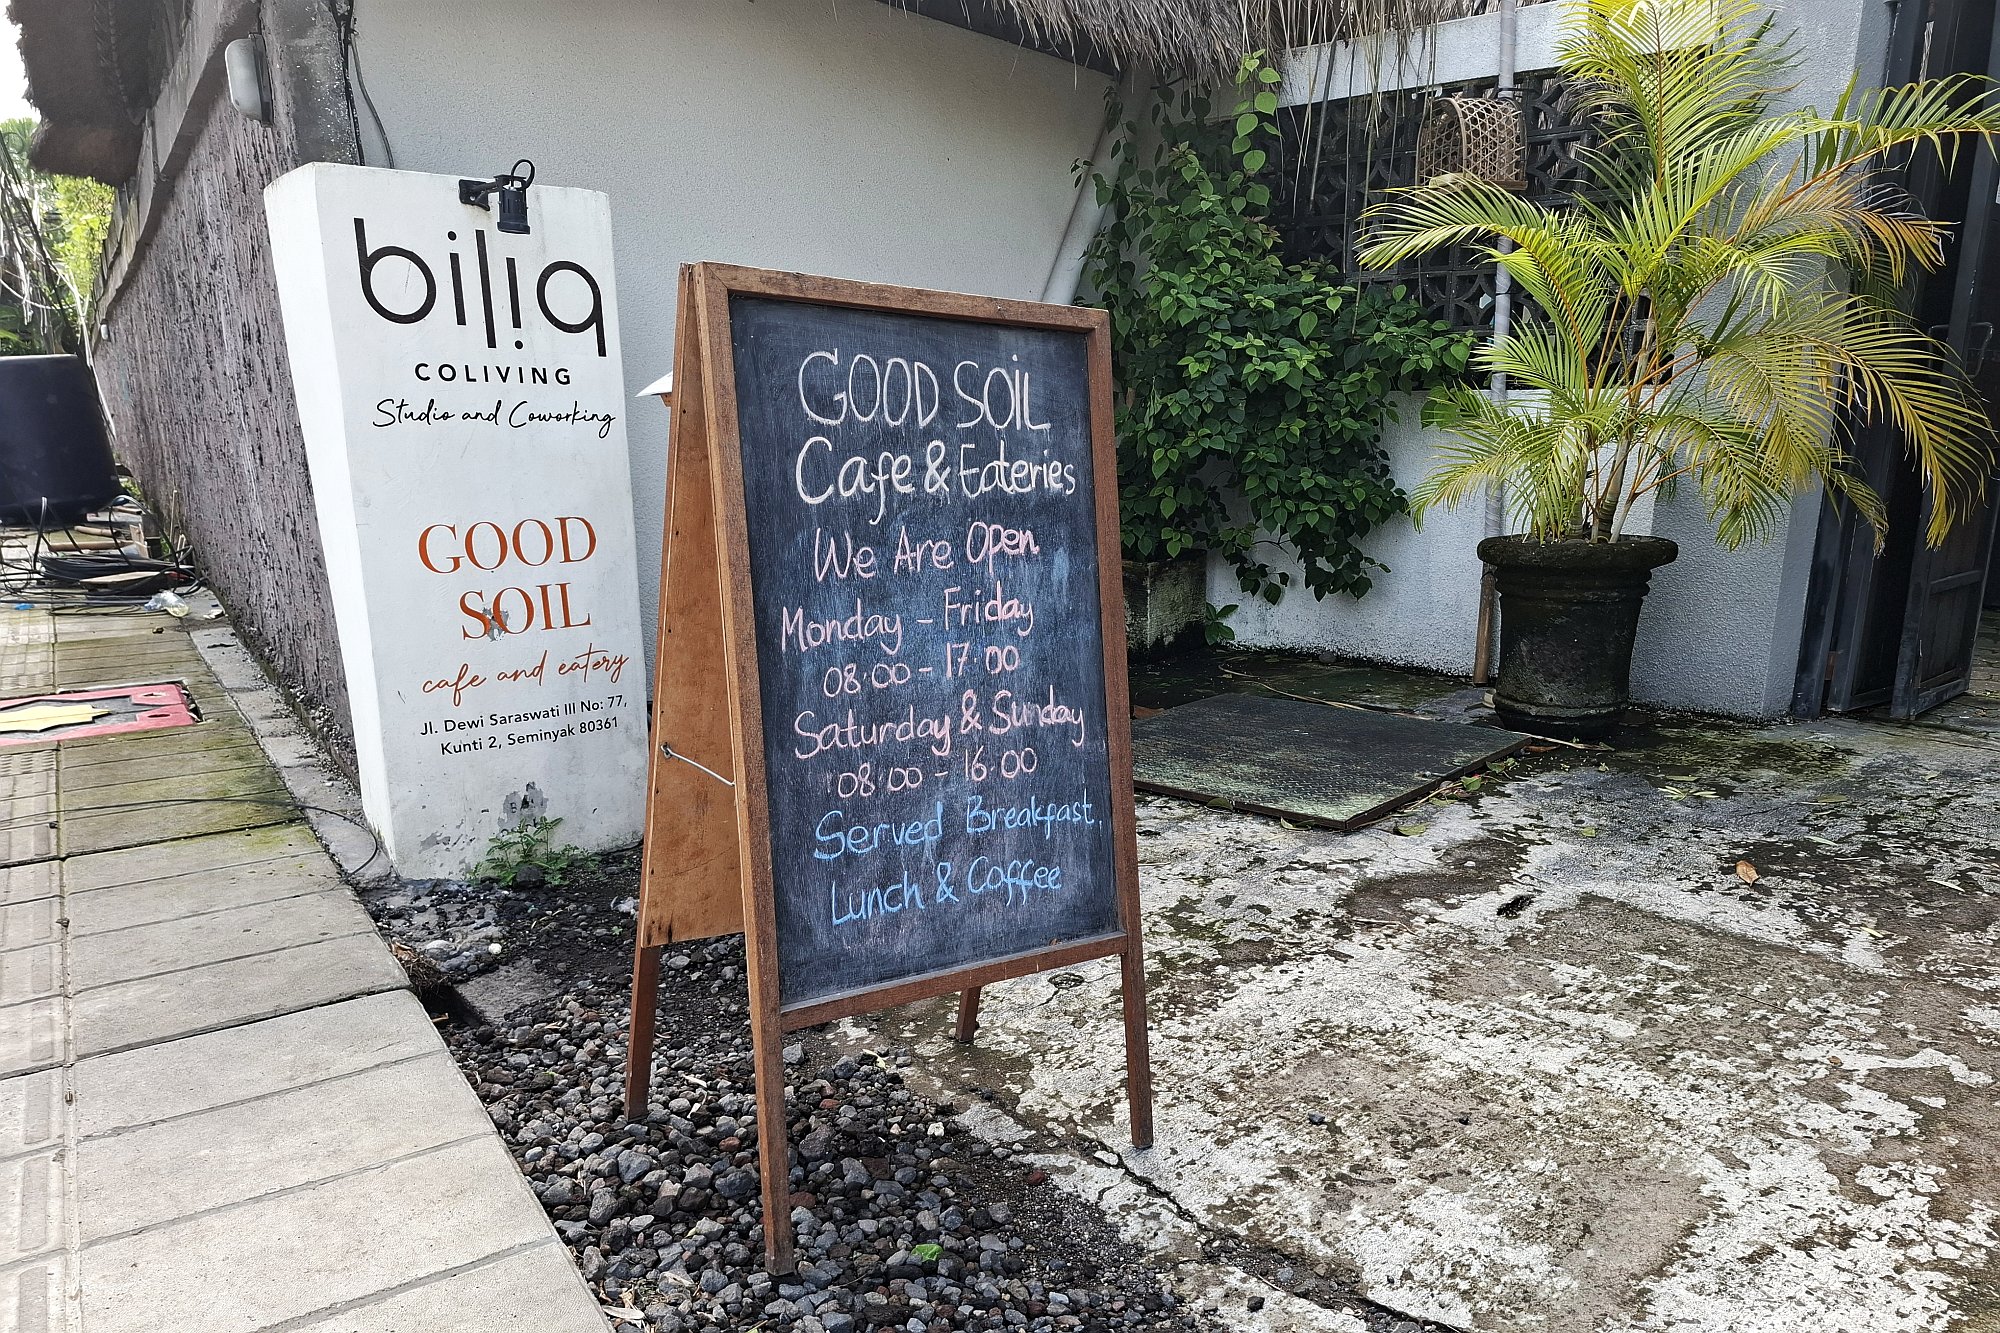 biliq
COLIVING
Studio and Coworking
GOOD
SOIL
cafe and eatery
Jl. Dewi Saraswati III No: 77,
Kunti 2, Seminyak 80361
GOOD SOIL
Cafe & Eateries
We Are Open
Monday - Friday
08:00 - 17:00
Saturday & Sunday
08:00 - 16:00
Served Breakfast,
Lunch & Coffee